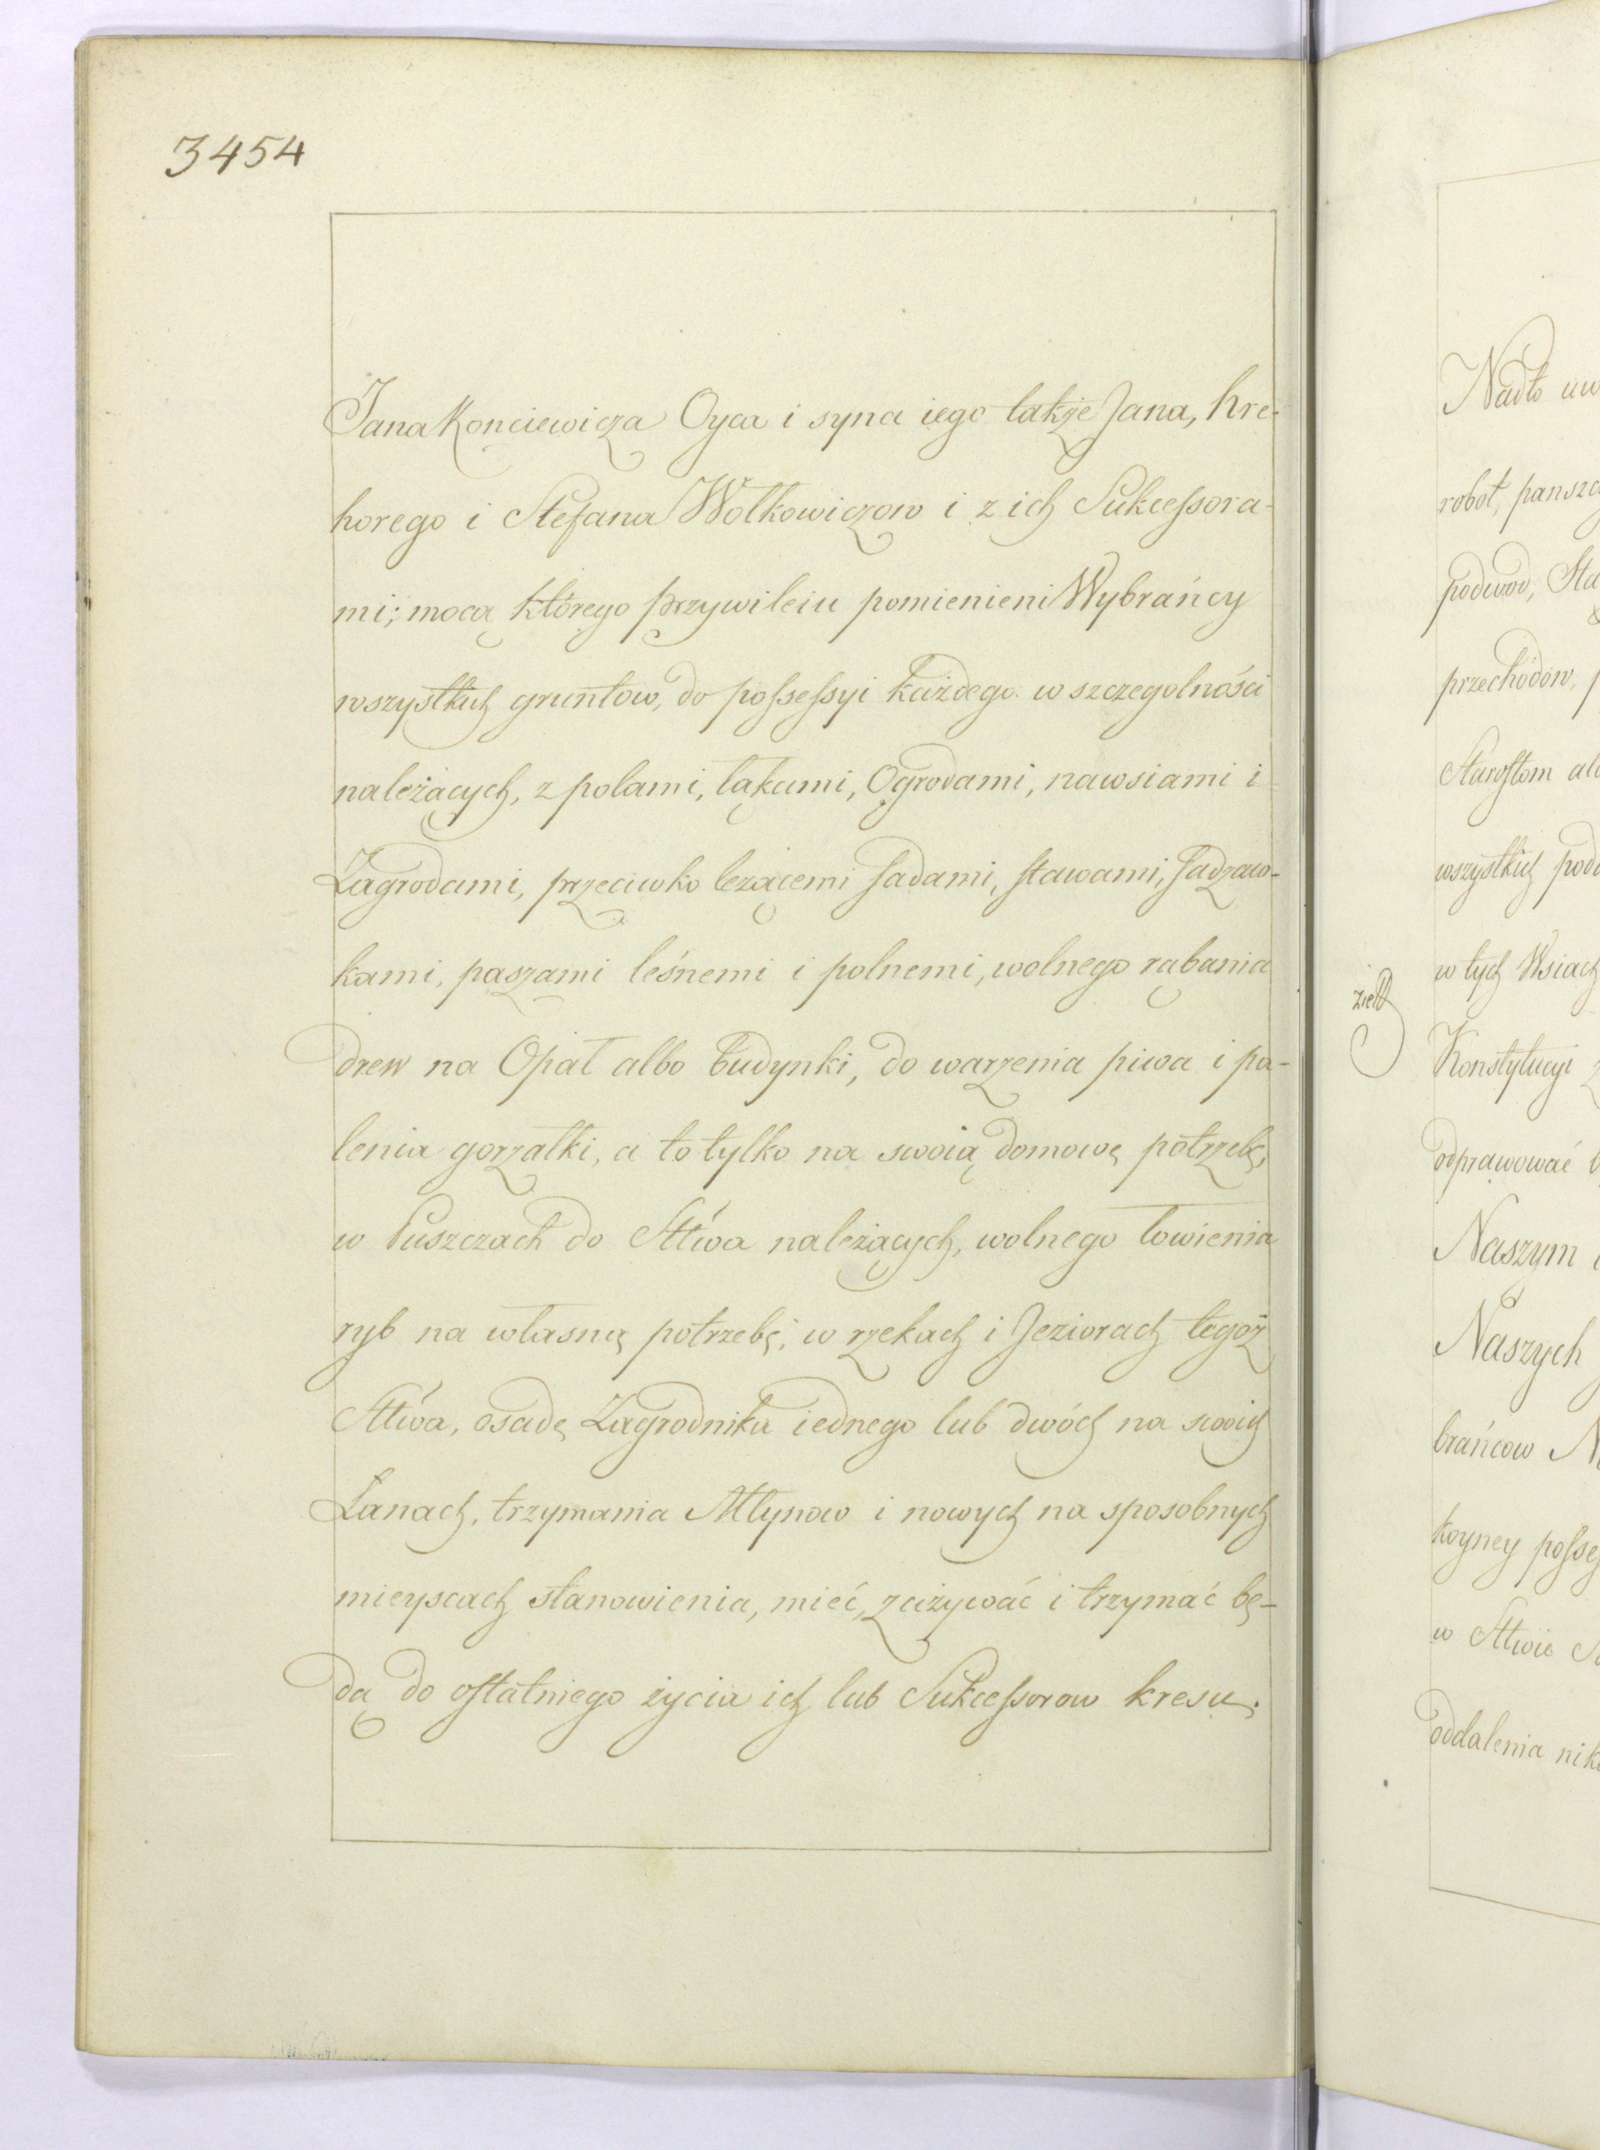 3454
Jana Konciewicza Oyca i syna iego także Jana, Hre-
horego i Stefana Wołkowiczow i z ich Sukcessora-
mi; mocą którego przywileiu pomienieni Wybrańcy
wszystkich gruntow, do possessyi każdego w szczegolności
należących, z polami, łąkami, Ogrodami, nawsiami i
Zagrodami, przeciwko leżącemi sadami, stawami, sadzaw-
kami, paszami leśnemi i polnemi, wolnego rąbania
drew na Opał albo budynki, do warzenia piwa i pa-
lenia gorzałki, a to tylko na swoią domową potrzebę,
w Puszczach do Sttwa należących, wolnego łowienia
ryb na własną potrzebę, w rzekach i Jeziorach tegoż
Sttwa, osadę Zagrodnika iednego lub dwóch na swoich
Łanach, trzymania Młynow i nowych na sposobnych
mieyscach stanowienia, mieć, zażywać i trzymać bę-
dą do ostatniego życia ich lub Sukcessorow kresu.
Nadto
robot,
podwod,
przechodow,
Starostom
wszystkich
w tych Wsiach
Konstytucyi
odprawować
Naszym
Naszych
brańcow
koyney
w Sttwie
oddalenia